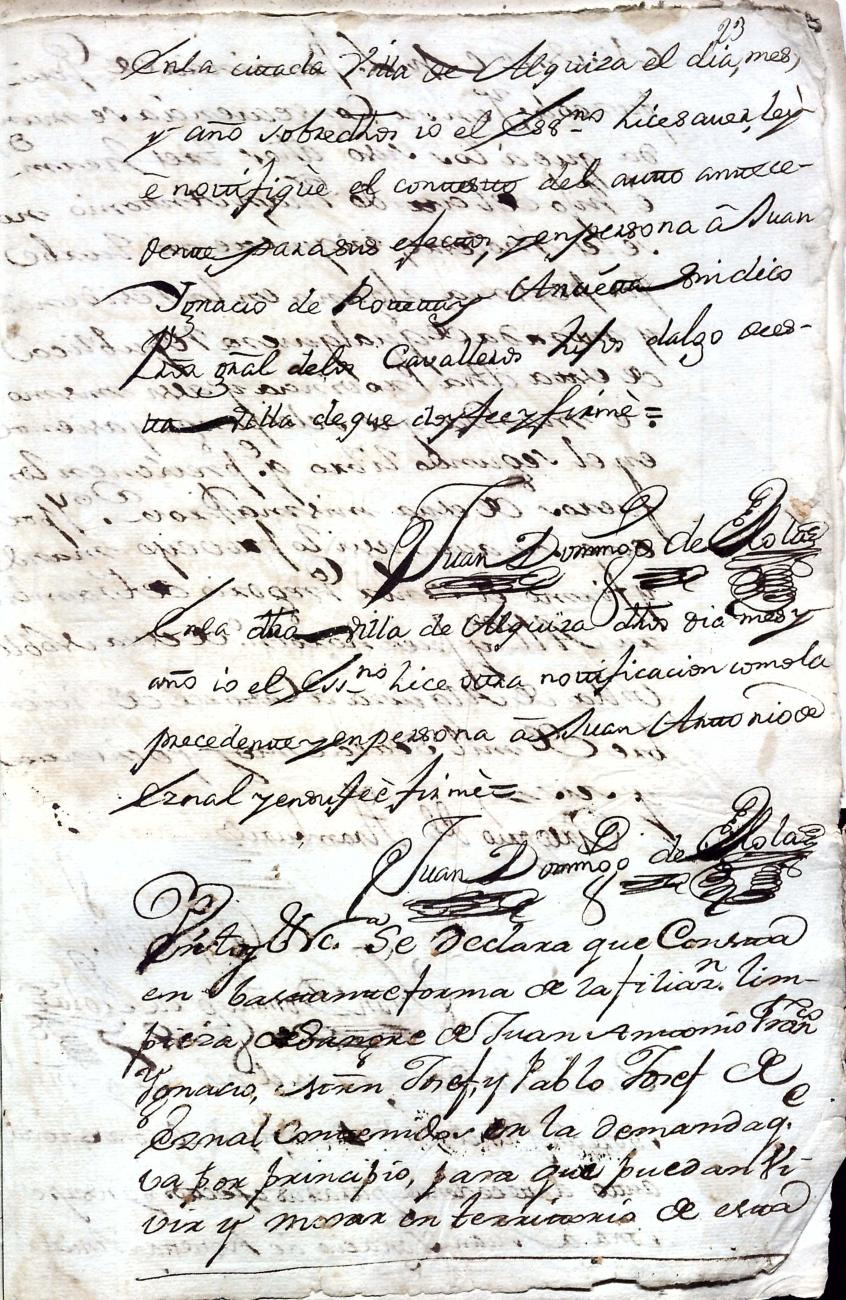 23
En la citada Villa de Alquiza el dia, mes,
y año sobredhos io el Essno hice sauer, ley
è notifiquè el contesto del auto antece-
dente para sus efectos, y en persona â Juan
Ygnacio de Anuéta Sindico
Pror gñal de los Cavalleros hijos dalgo de es-
ta Villa de que doy fee y firmè =
Juan Domingo de
En la dha Villa de Alquiza dhos dia mes y
año io el Essno hice otra notificacion como la
precedente y en persona â Juan Antonio de
Eznal y en su feè firmè =
Juan Domingo de
Vistos &c.a Se declara que Consta
en bastante forma de la filiazn. lim-
pieza de Sangre de Juan Antonio Franco
Ygnacio, Josef, y Pablo Josef de
Eznal Contenidos en la demanda q.e
va por principio, para que puedan Vi-
vir y morar en territorio de esta